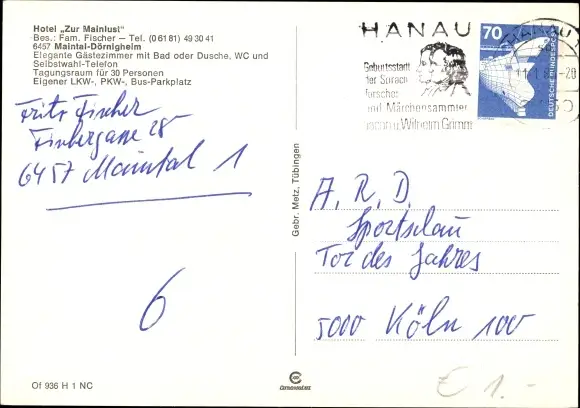 Hotel „Zur Mainlust"
Bes.: Fam. Fischer — Tel. (0 61 81) 49 30 41
6457 Maintal-Dörnigheim
Elegante Gästezimmer mit Bad oder Dusche, WC und
Selbstwahl-Telefon
Tagungsraum für 30 Personen
Eigener LKW-, PKW-, Bus-Parkplatz
Fritz Fischer
Fischergasse 28
6457 Maintal 1
6
Of 936 H 1 NC
Gebr. Metz, Tübingen
HANAU
Geburtsstadt
der Sprach
forscher
und Märchensammler
Jacob u. Wilhelm Grimm
HANAU
70
DEUTSCHE BUNDESPOST
A. R. D.
Sportschau
Tor des Jahres
5000 Köln 100
€ 1.-